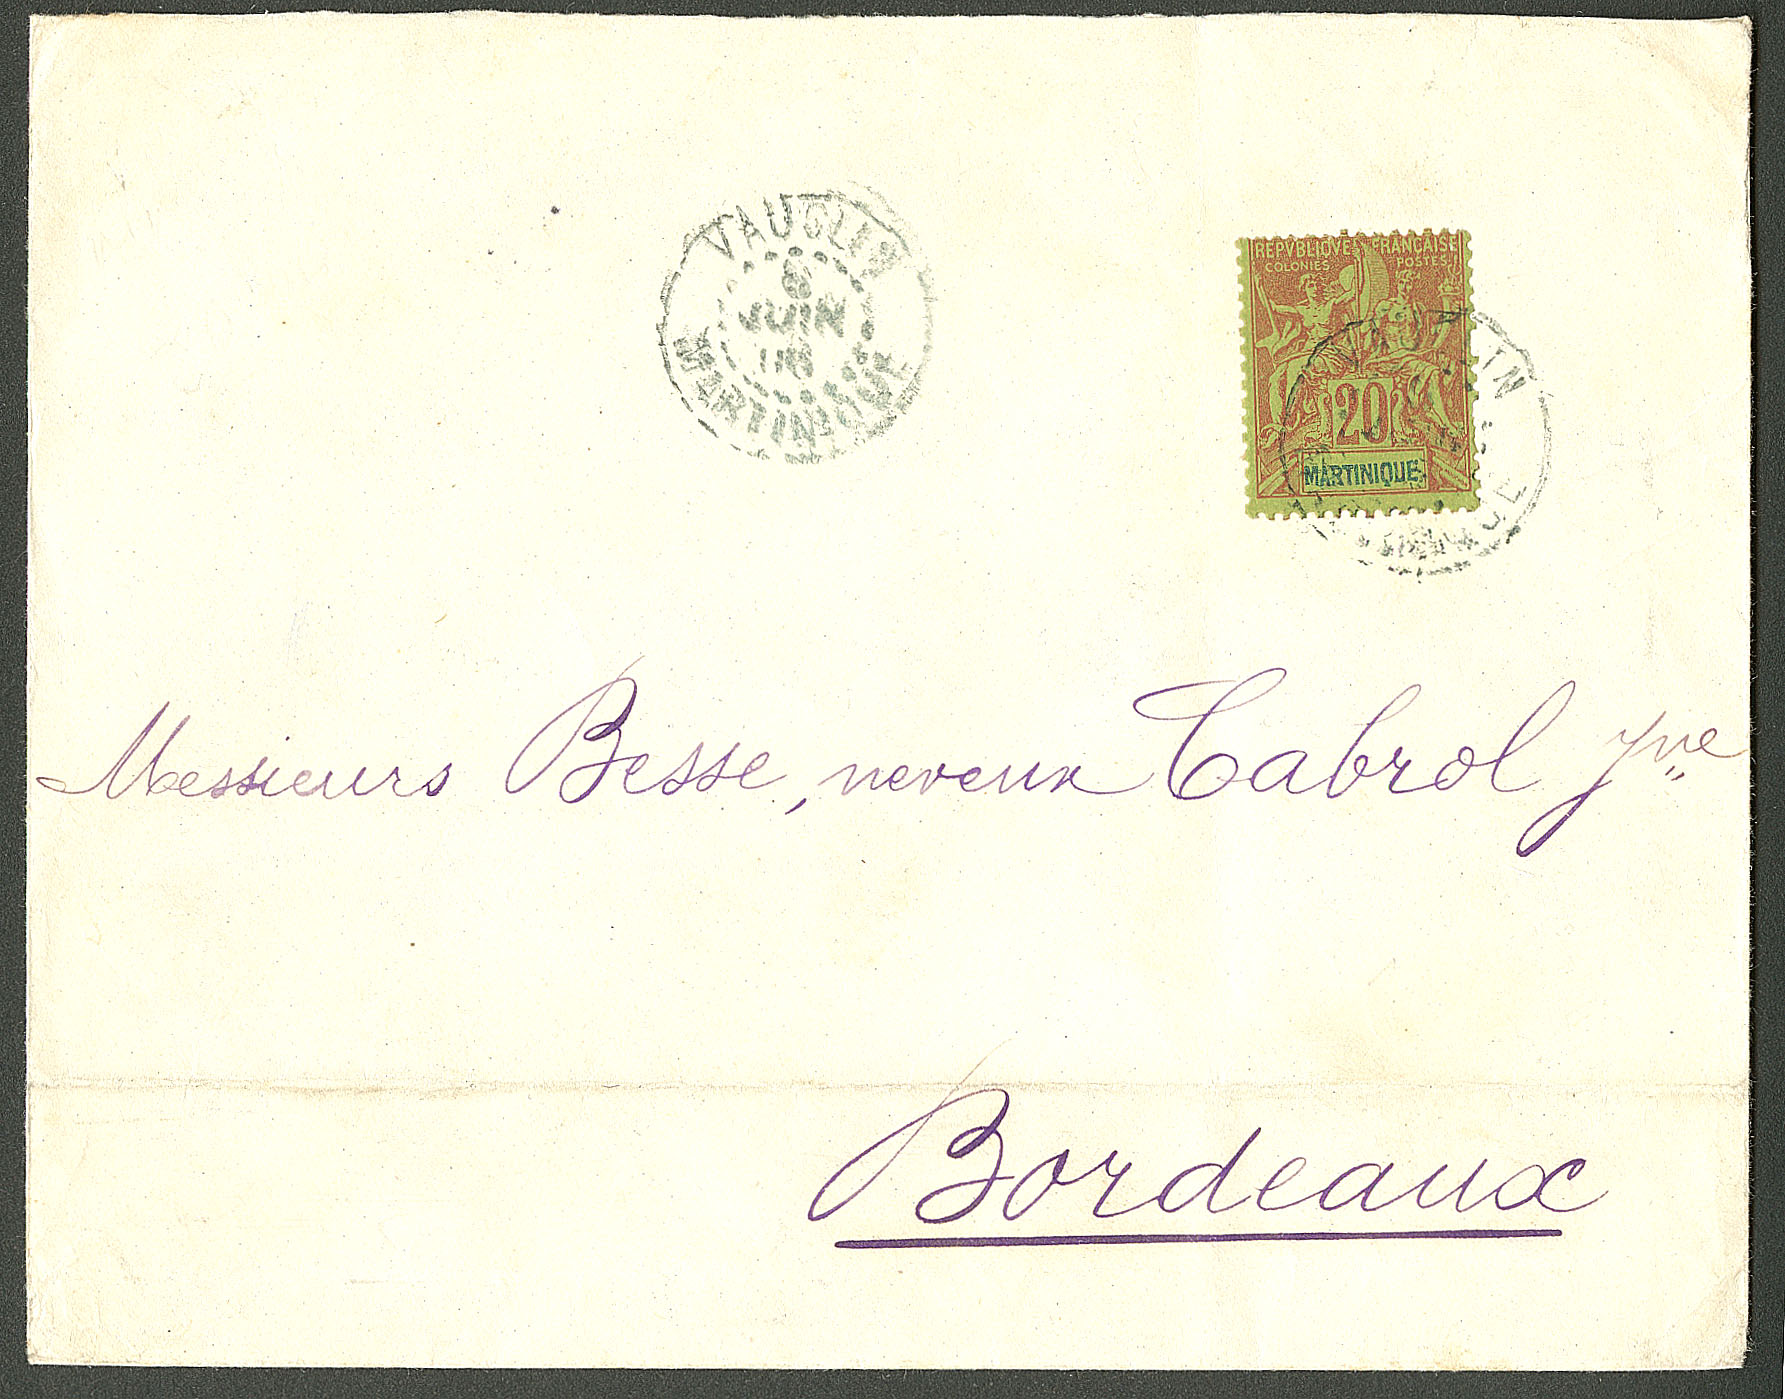 VAUCLIN
6
JUIN
MARTINIQUE
REPVBLIQVE FRANÇAISE
COLONIES POSTES
20
MARTINIQUE
Messieurs Besse, neveux Cabrol Jne
Bordeaux